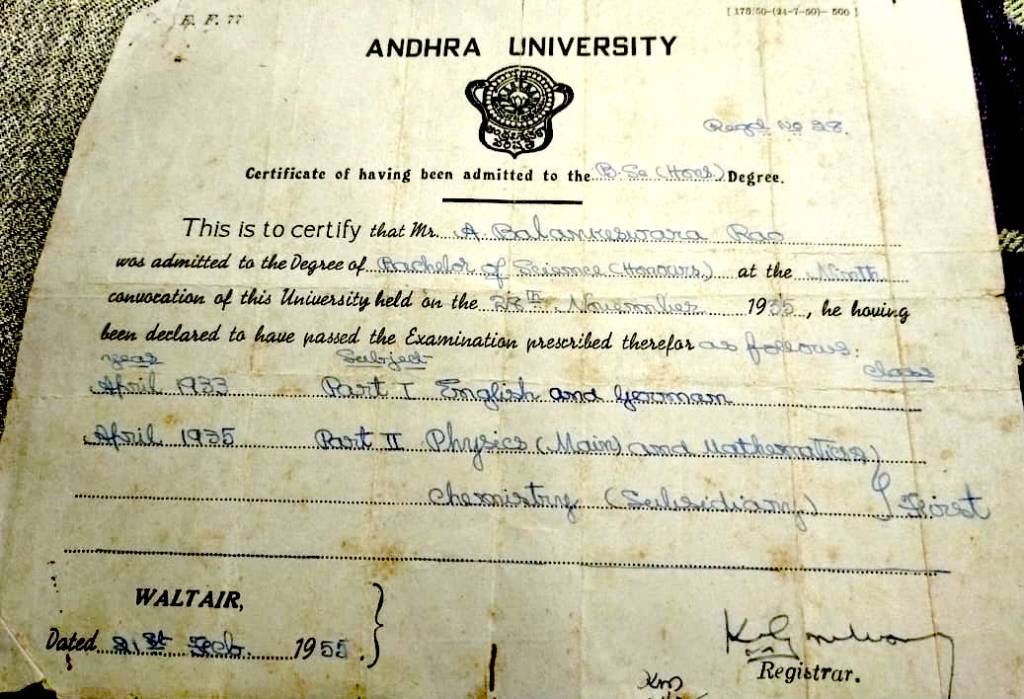 E. F. 77
[ 175/50-(24-7-50)- 500 ]
ANDHRA UNIVERSITY
Regd. No 28.
Certificate of having been admitted to the B.Sc (Hons) Degree.
This is to certify that Mr. A Balankeswara Rao
was admitted to the Degree of Bachelor of Science (Honours) at the Ninth
convocation of this University held on the 28th November 1935, he having
been declared to have passed the Examination prescribed therefor as follows:
year Subject class
April 1933 Part I English and German
April 1935 Part II Physics (Main) and Mathematics
Chemistry (Subsidiary) } First
WALTAIR,
Dated 21st Feb. 1955.
Registrar.